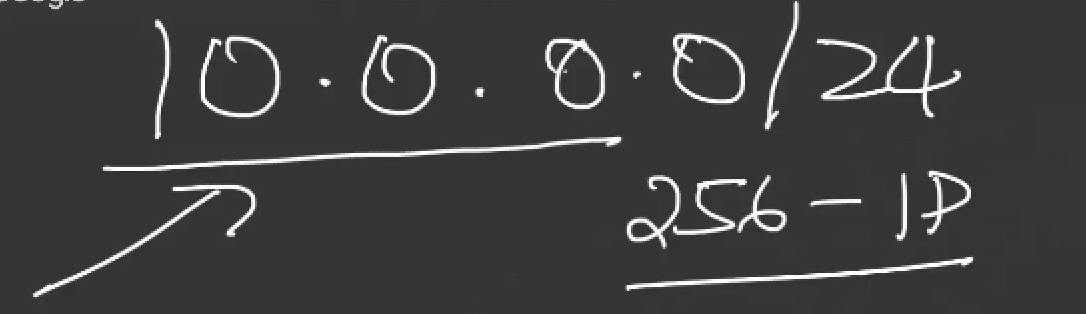 10.0.0.0/24
256-IP